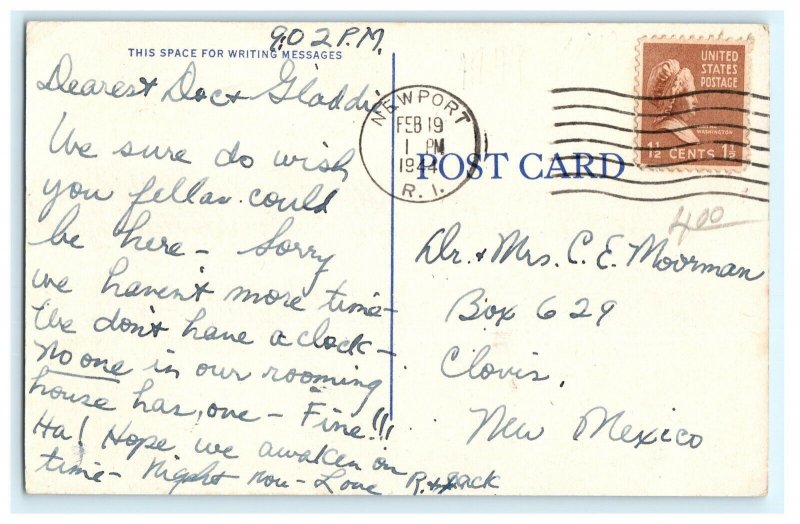 9:02 P.M.
THIS SPACE FOR WRITING MESSAGES
Dearest Doc + Gladdie
We sure do wish
you fellas could
be here - Sorry
we haven't more time -
We don't have a clock -
No one in our rooming
house has, one - Fine!!!
Ha! Hope we awaken on
time - Night now - Love R. + Jack
NEWPORT
FEB 19
1 PM
1944
R. I.
UNITED
STATES
POSTAGE
WASHINGTON
1½ CENTS 1½
POST CARD
400
Dr. + Mrs. C. E. Moorman
Box 629
Clovis,
New Mexico